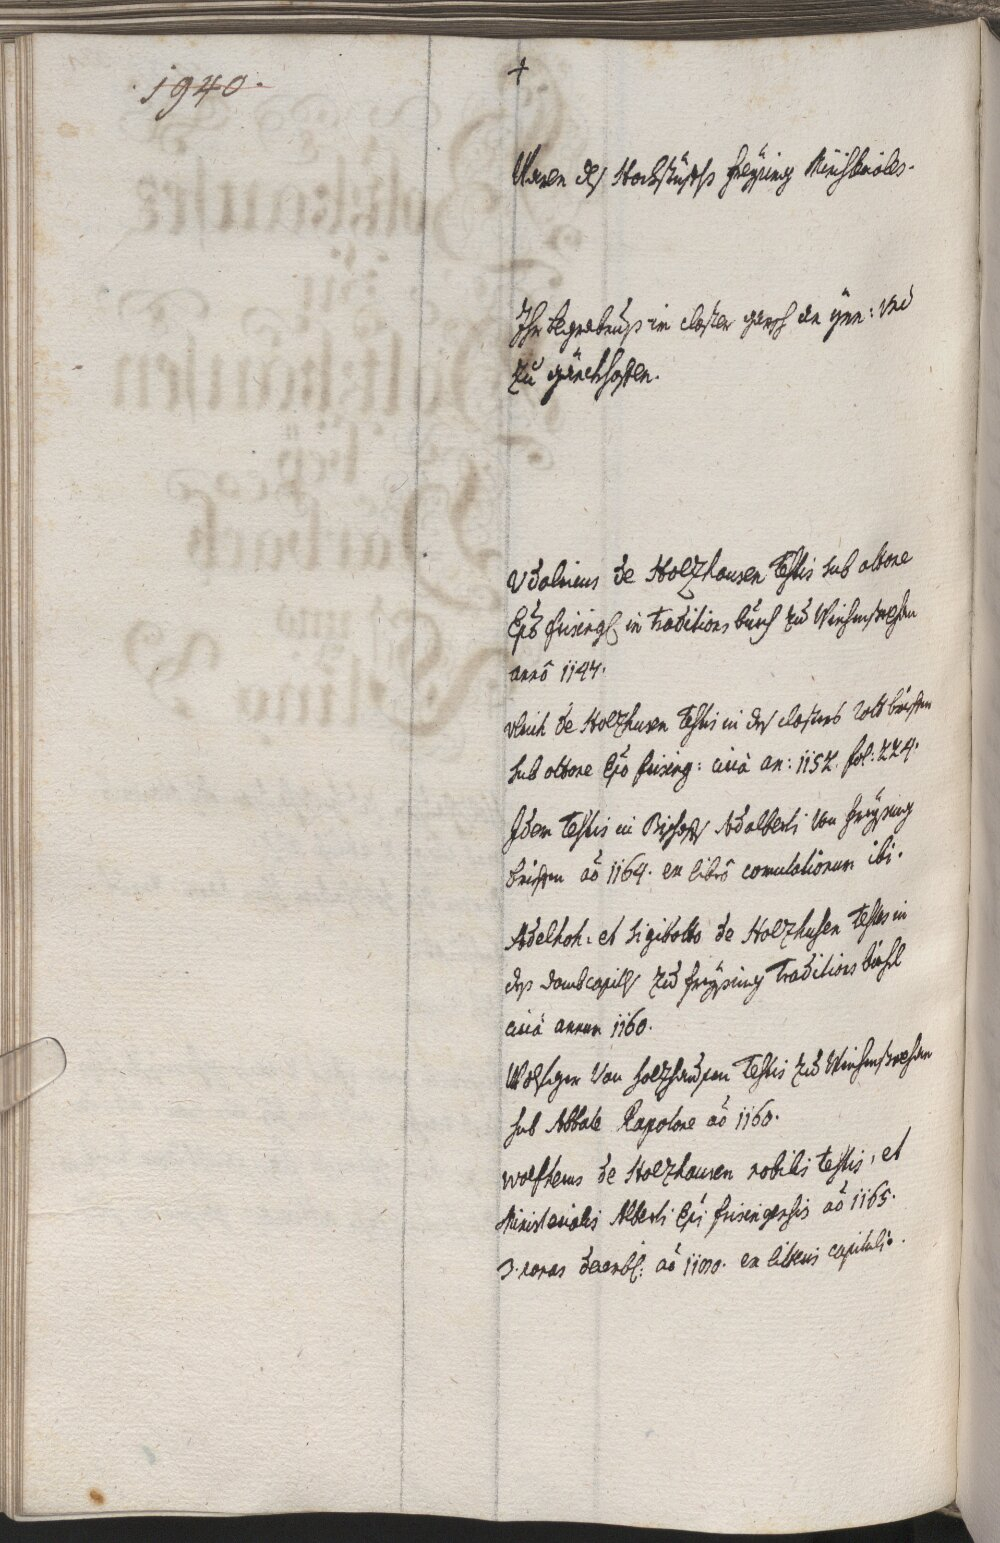 . 1940 .
+
Waren des Hochstüffts freÿsing Ministeriales.
Ihr begrabnus im closter garsh am ÿnn: und
zu
Udalricus de Holzhausen testis sub ottone
Epõ frising: in traditions buech zu Weichenstephen
anno 1147.
Ulrich de Holzhusen testis in des closters rott briefen
sub ottone Epõ frising: circa an: 1152. fol: 224.
Idem testis in Bischoffs Adalberti von freÿsing
briefen aõ 1164. ex libro comutationum ibi.
Adelhoh: et Sigiboto de Holzhusen testes in
des dombcapitls zu freÿsing traditions büechl
circa annum 1160.
von holzhausen testis zu Weichenstephen
sub Abbate Rapotone aõ 1160.
de Holzhausen nobilis testis, et
Ministerialis Alberti Epi frisingensis aõ 1165.
3. nonas decemb: aõ ex litteris capituli.